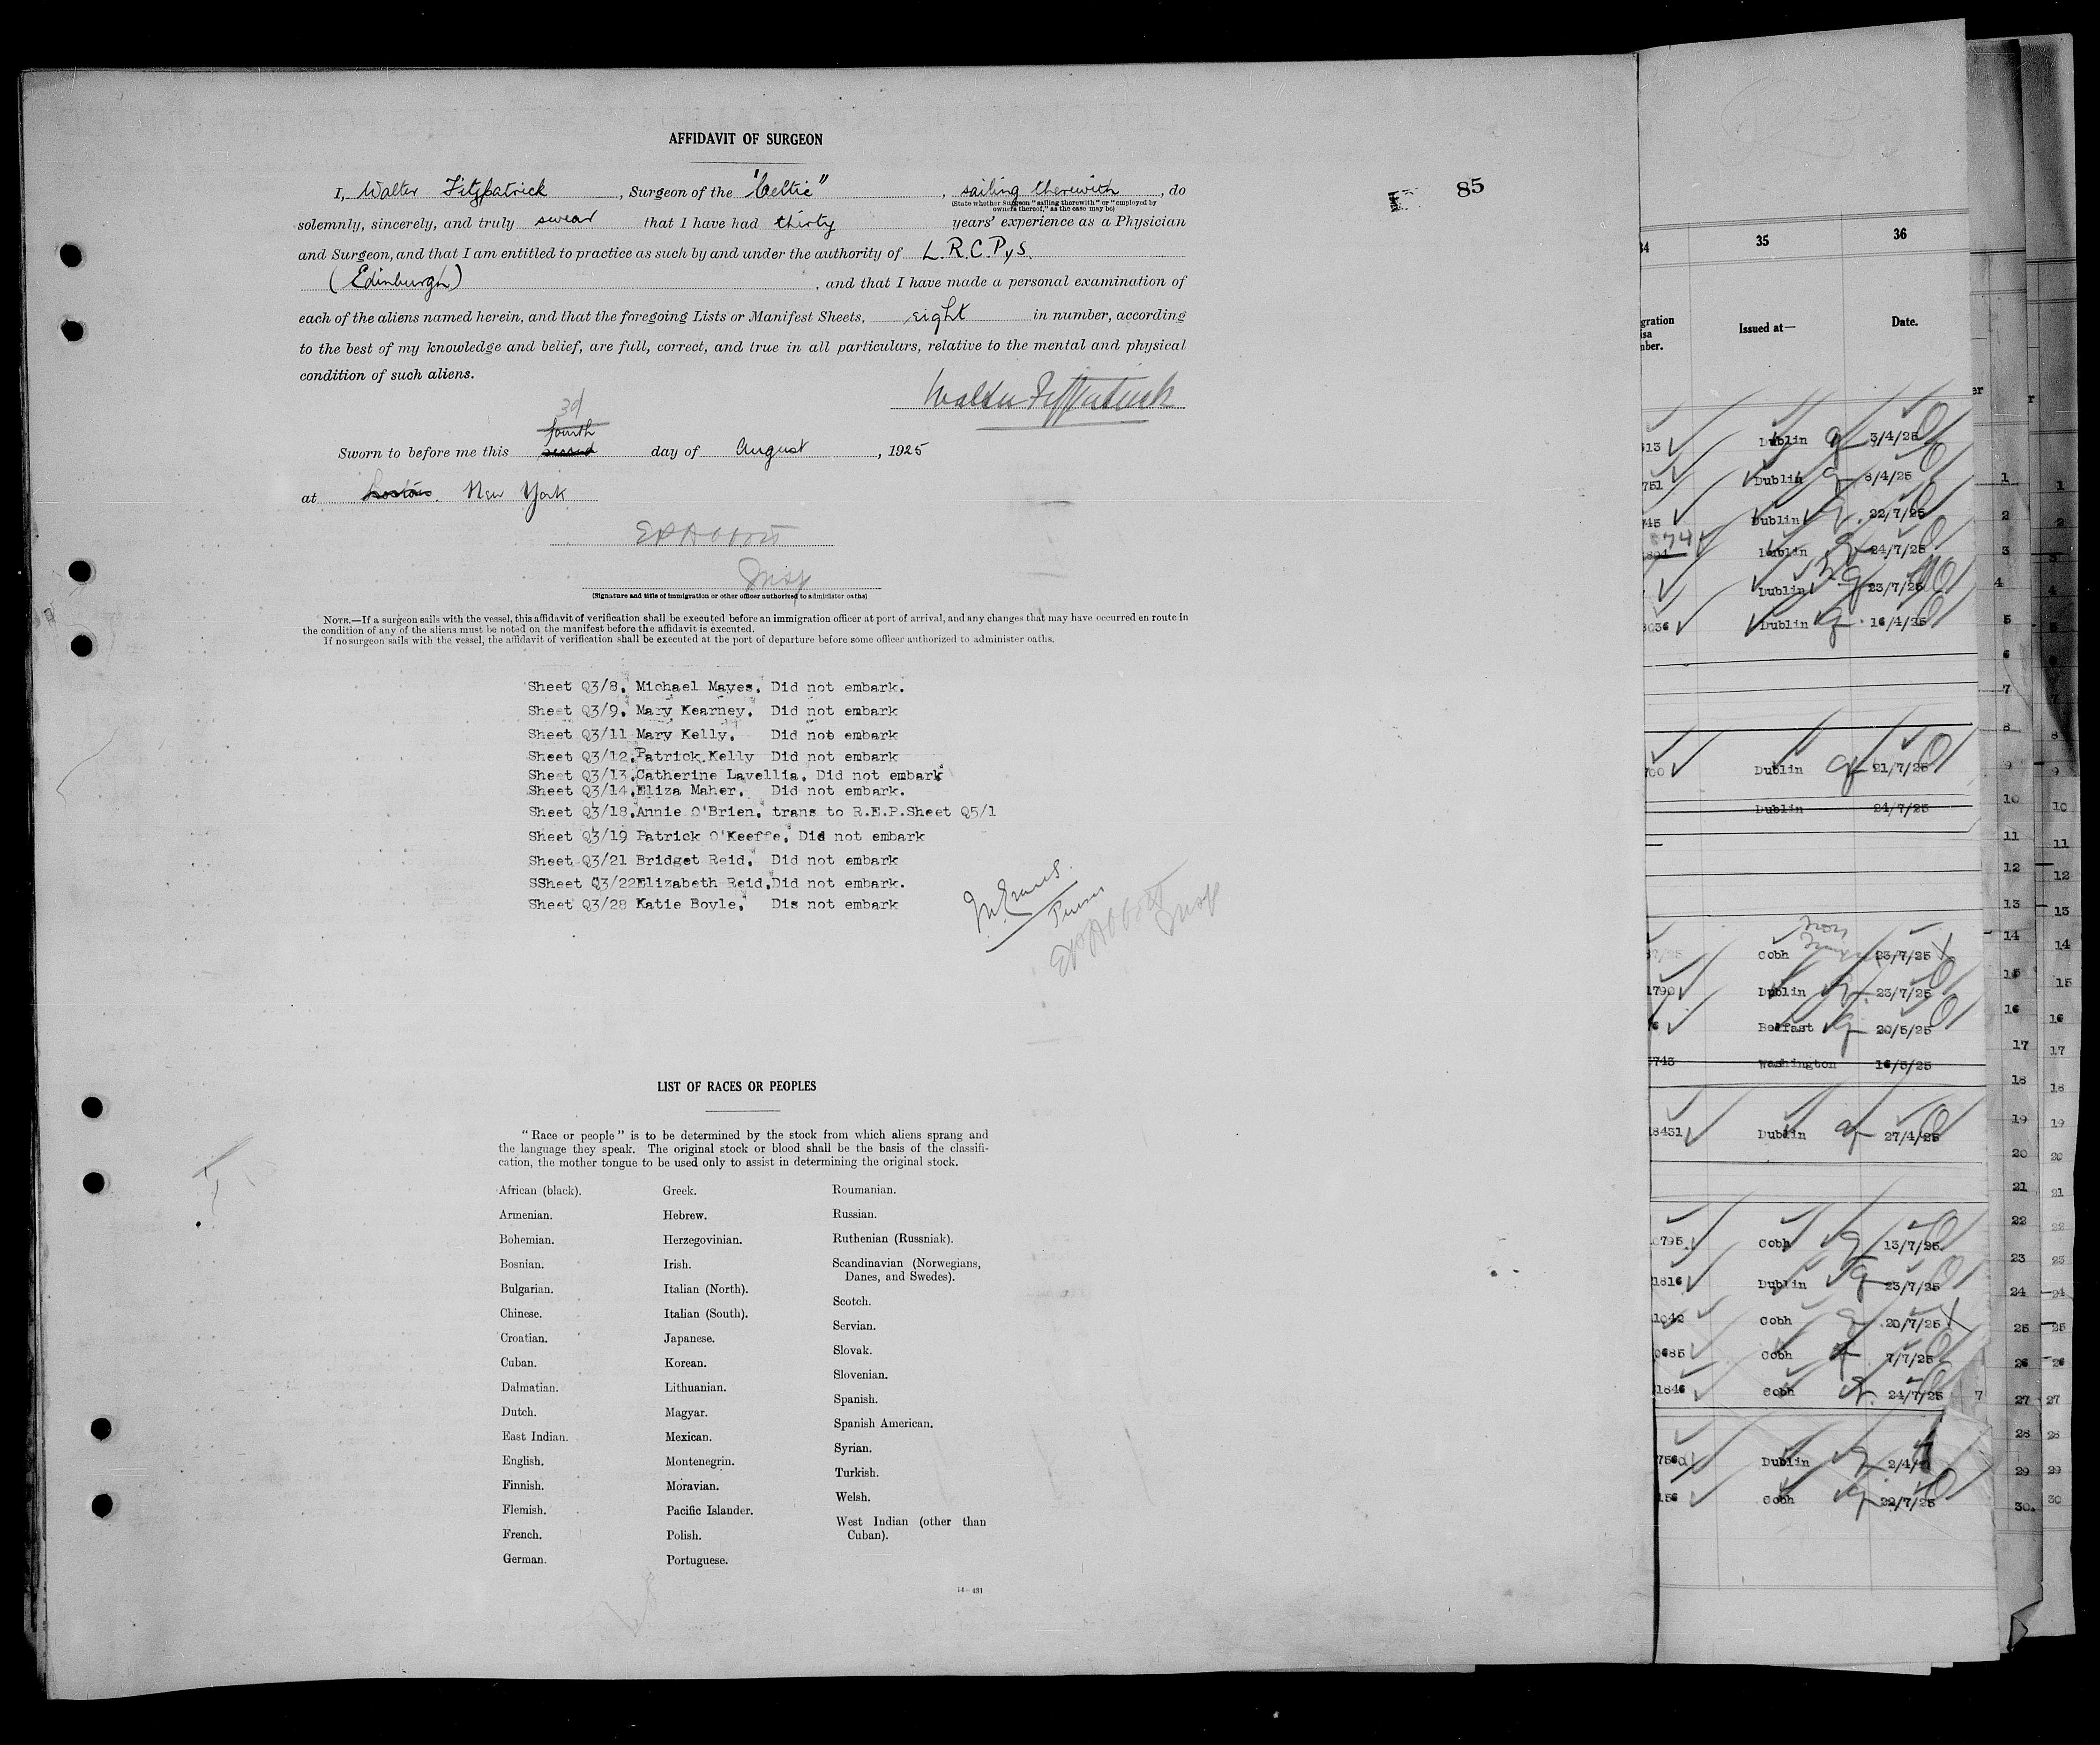 AFFIDAVIT OF SURGEON
85
I, Walter Fitzpatrick, Surgeon of the "Celtic", sailing therewith, do
(State whether Surgeon "sailing therewith" or "employed by
owners thereof," as the case may be)
solemnly, sincerely, and truly swear that I have had thirty years' experience as a Physician
and Surgeon, and that I am entitled to practice as such by and under the authority of L.R.C.P.,S.
(Edinburgh), and that I have made a personal examination of
each of the aliens named herein, and that the foregoing Lists or Manifest Sheets, eight in number, according
to the best of my knowledge and belief, are full, correct, and true in all particulars, relative to the mental and physical
condition of such aliens.
Walter Fitzpatrick
3d
fourth
Sworn to before me this second day of August, 1925
at Boston. New York
E A Abbott
Insp
(Signature and title of immigration or other officer authorized to administer oaths)
NOTE.—If a surgeon sails with the vessel, this affidavit of verification shall be executed before an immigration officer at port of arrival, and any changes that may have occurred en route in
the condition of any of the aliens must be noted on the manifest before the affidavit is executed.
If no surgeon sails with the vessel, the affidavit of verification shall be executed at the port of departure before some officer authorized to administer oaths.
Sheet Q3/8. Michael Mayes. Did not embark.
Sheet Q3/9. Mary Kearney. Did not embark
Sheet Q3/11 Mary Kelly. Did not embark
Sheet Q3/12.Patrick.Kelly Did not embark
Sheet Q3/13.Catherine Lavellia. Did not embark
Sheet Q3/14.Eliza Maher. Did not embark.
Sheet Q3/18.Annie O'Brien. trans to R.E.P.Sheet Q5/1
Sheet Q3/19 Patrick O'Keeffe. Did not embark
Sheet Q3/21 Bridget Reid. Did not embark
SSheet Q3/22Elizabeth Reid.Did not embark.
Sheet Q3/28 Katie Boyle. Dis not embark
M. Evans.
Purser
E A Abbott
Insp
LIST OF RACES OR PEOPLES
"Race or people" is to be determined by the stock from which aliens sprang and
the language they speak. The original stock or blood shall be the basis of the classifi-
cation, the mother tongue to be used only to assist in determining the original stock.
African (black).
Armenian.
Bohemian.
Bosnian.
Bulgarian.
Chinese.
Croatian.
Cuban.
Dalmatian.
Dutch.
East Indian.
English.
Finnish.
Flemish.
French.
German.
Greek.
Hebrew.
Herzegovinian.
Irish.
Italian (North).
Italian (South).
Japanese.
Korean.
Lithuanian.
Magyar.
Mexican.
Montenegrin.
Moravian.
Pacific Islander.
Polish.
Portuguese.
Roumanian.
Russian.
Ruthenian (Russniak).
Scandinavian (Norwegians,
Danes, and Swedes).
Scotch.
Servian.
Slovak.
Slovenian.
Spanish.
Spanish American.
Syrian.
Turkish.
Welsh.
West Indian (other than
Cuban).
14—431
34 35 36
gration
isa
mber.
Issued at—
Date.
Dublin 3/4/25
751 Dublin 8/4/25
745 Dublin 22/7/25
Dublin 24/7/25
Dublin 23/7/25
3036 Dublin 16/4/25
700 Dublin 21/7/25
Dublin 24/7/25
Cobh 23/7/25
1790 Dublin 23/7/25
Belfast 20/5/25
743 Washington 16/5/25
18431 Dublin 27/4/25
0795 Cobh 13/7/25
1816 Dublin 23/7/25
1042 Cobh 20/7/25
0685 Cobh 7/7/25
1846 Cobh 24/7/25
7560 Dublin 2/4/
156 Cobh 22/7/25
1
2
3
4
5
6
7
8
9
10
11
12
13
14
15
16
17
18
19
20
21
22
23
24
25
26
27
28
29
30
1
2
3
4
5
6
7
8
9
10
11
12
13
14
15
16
17
18
19
20
21
22
23
24
25
26
27
28
29
30